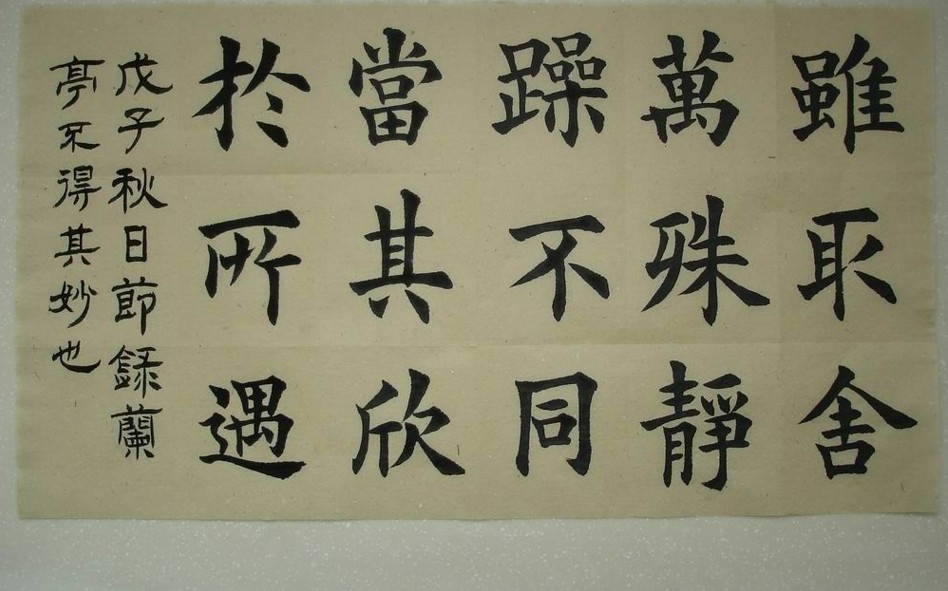 雖取舍
萬殊靜
躁不同
當其欣
於所遇
戊子秋日節錄蘭
亭不得其妙也